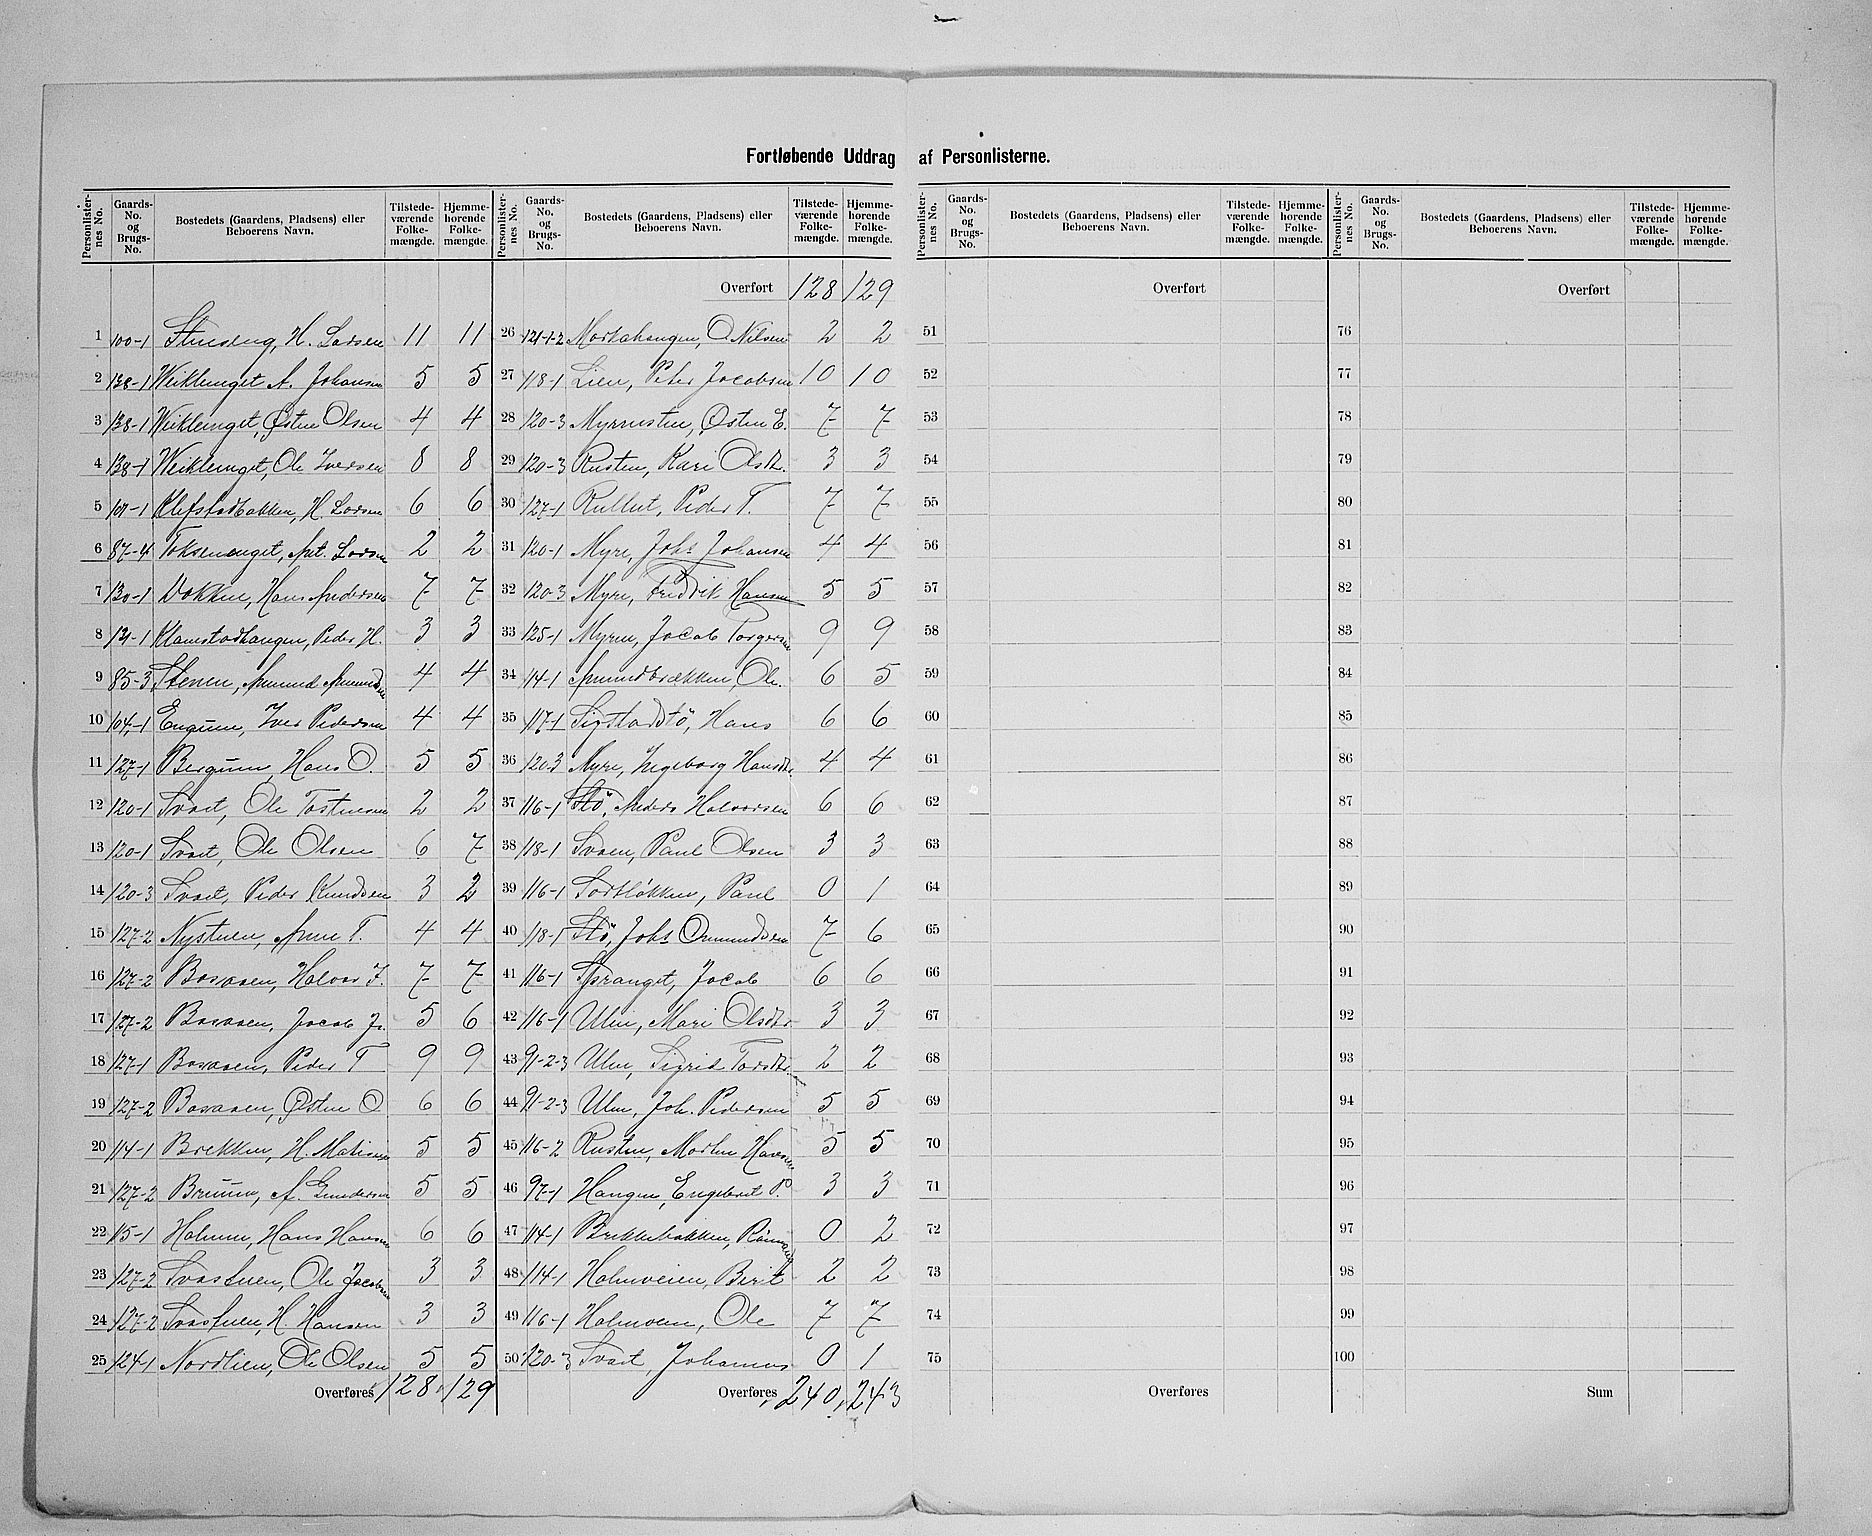 Fortløbende Uddrag af Personlisterne.
Personlister-nes No. Gaards-No. og Brugs-No. Bostedets (Gaardens, Pladsens) eller Beboerens Navn. Tilstede-værende Folke-mængde. Hjemme-hørende Folke-mængde.
1 100-1 H. Larsen 11 11
2 138-1 Weiklenget A. Johansen 5 5
3 138-1 Weiklenget, Østen Olsen 4 4
4 138-1 Weiklenget, Ole Iversen 8 8
5 101-1 Klefstadbakken, H. Larsen 6 6
6 87-4 Toksenenget, Ant. Larsen 2 2
7 130-1 Dokken, Hans Andersen 7 7
8 131-1 Klomstadhaugen, Peder H. 3 3
9 85-3 Stenen, Amund Amundsen 4 4
10 104-1 Engum, Iver Pedersen 4 4
11 127-1 Bergum, Hans O. 5 5
12 120-1 Svart, Ole Tostensen 2 2
13 120-1 Svart, Ole Olsen 6 7
14 120-3 Svart, Peder Knudsen 3 2
15 127-2 Nystuen, Anne T. 4 4
16 127-2 Basaaen, Halvor J. 7 7
17 127-2 Basaaen, Jacob Js. 5 6
18 127-1 Basaaen, Peder T 9 9
19 127-2 Basaaen, Østen O 6 6
20 114-1 Brekken, H. Matisen 5 5
21 127-2 Bruun, A. Gundersen 5 5
22 115-1 Holmen, Hans Hansen 6 6
23 127-2 Svastuen, Ole Jacobsen 3 3
24 127-2 Svastuen, H. Hansen 3 3
25 124-1 Nordlien, Ole Olsen 5 5
Overføres 128 129
Personlister-nes No. Gaards-No. og Brugs-No. Bostedets (Gaardens, Pladsens) eller Beboerens Navn. Tilstede-værende Folke-mængde. Hjemme-hørende Folke-mængde.
Overført 128 129
26 121-1-2 Mortahaugen, O Nilsen 2 2
27 118-1 Lien, Peter Jacobsen 10 10
28 120-3 Myrrusten, Østen E. 7 7
29 120-3 Rusten, Kari Olsdtr. 3 3
30 127-1 Rullut, Peder T. 7 7
31 120-1 Myre, Johs Johansen 4 4
32 120-3 Myre, Fredrik Hansen 5 5
33 125-1 Myren, Jacob Torgersen 9 9
34 114-1 Amundbrækken, Ole. 6 5
35 117-1 Sigstadstö, Hans 6 6
36 120-3 Myre, Ingeborg Hansdtr 4 4
37 116-1 Stö, Anders Halvorsen 6 6
38 118-1 Svaen, Paul Olsen 3 3
39 116-1 Tortløkken, Paul 0 1
40 118-1 Stö, Johs Omundsen 7 6
41 116-1 Spranget, Jacob 6 6
42 116-1 Ulen, Mari Olsdtr 3 3
43 91-2-3 Ulen, Sigrid Torsdtr. 2 2
44 91-2-3 Ulen, Joh. Pedersen 5 5
45 116-2 Rusten, Morten Hansen 5 5
46 97-1 Haugen, Engebret P. 3 3
47 114-1 Brekkebakken, 0 2
48 114-1 Holmveien, Berit 2 2
49 116-1 Holmveien, Ole 7 7
50 120-3 Svart, Johannes 0 1
Overføres 240 243
Personlister-nes No. Gaards-No. og Brugs-No. Bostedets (Gaardens, Pladsens) eller Beboerens Navn. Tilstede-værende Folke-mængde. Hjemme-hørende Folke-mængde.
Overført
51
52
53
54
55
56
57
58
59
60
61
62
63
64
65
66
67
68
69
70
71
72
73
74
75
Overføres
Personlister-nes No. Gaards-No. og Brugs-No. Bostedets (Gaardens, Pladsens) eller Beboerens Navn. Tilstede-værende Folke-mængde. Hjemme-hørende Folke-mængde.
Overført
76
77
78
79
80
81
82
83
84
85
86
87
88
89
90
91
92
93
94
95
96
97
98
99
100
Sum